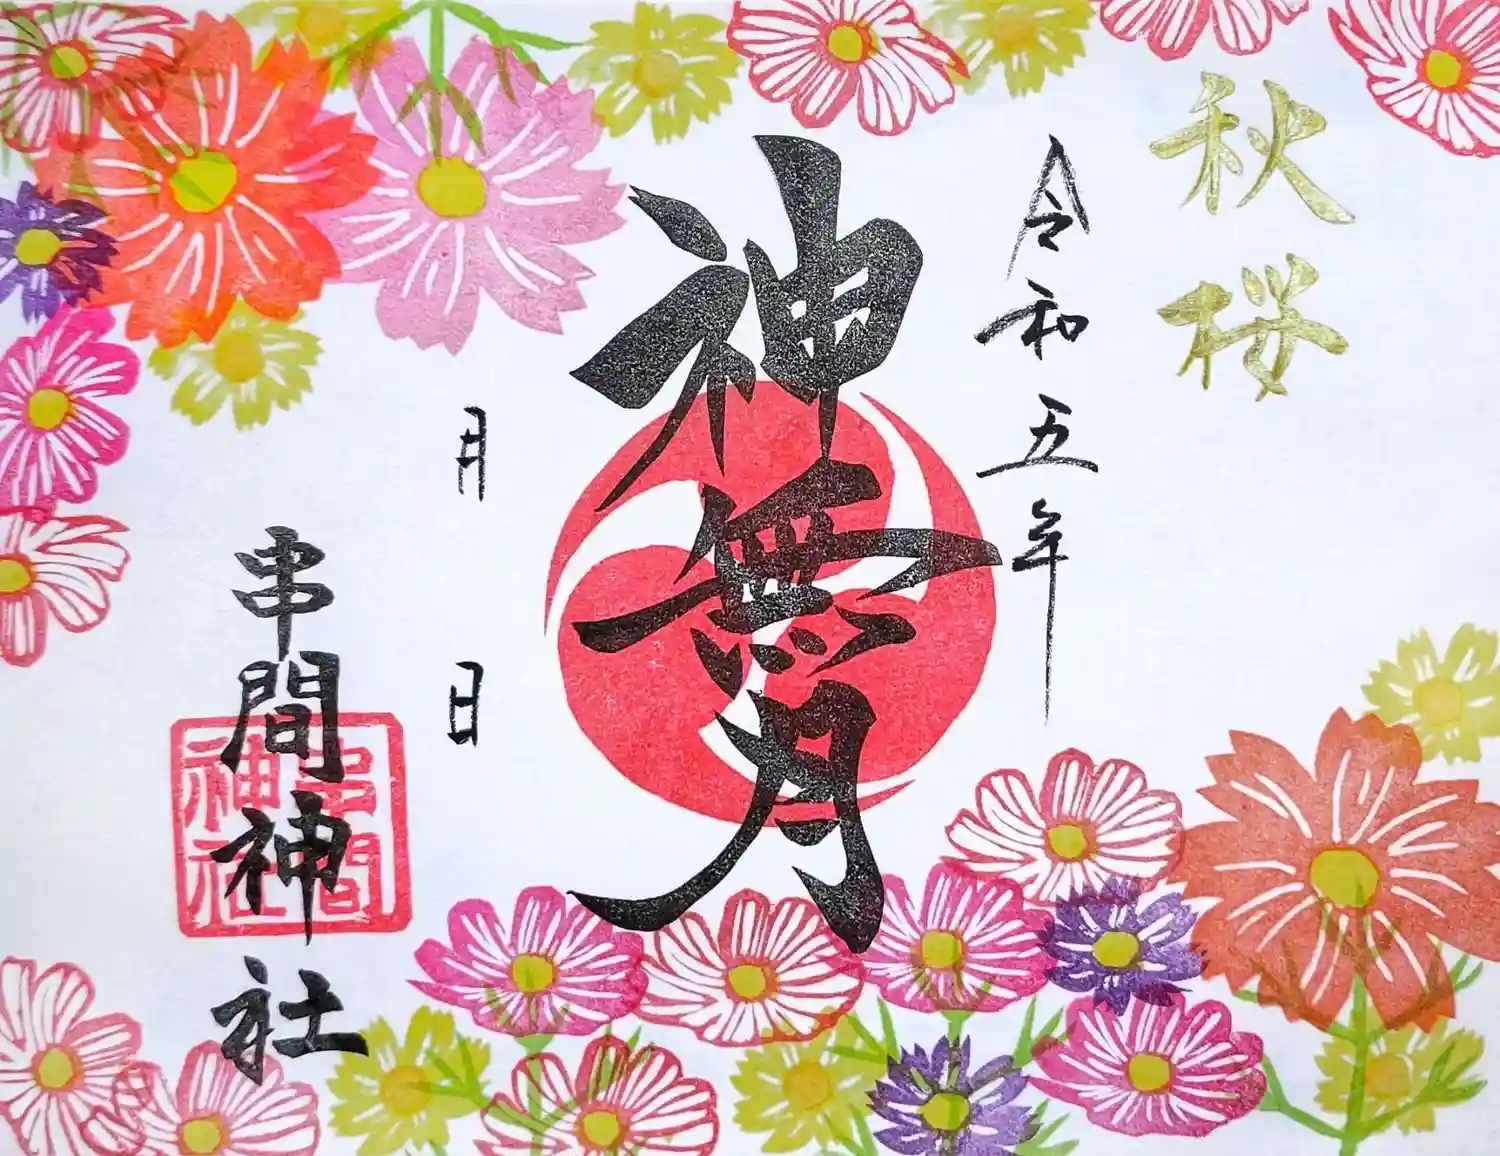 秋桜
令和五年
神無月
月 日
串間神社
串間神社